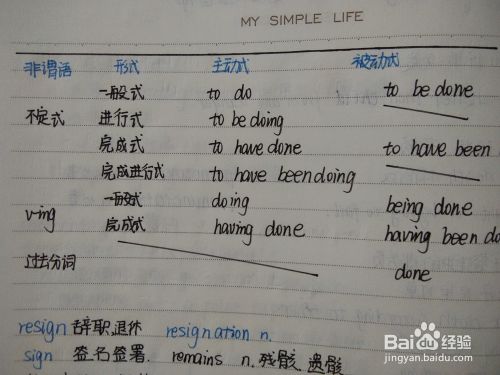 MY SIMPLE LIFE
非谓语 形式 主动式 被动式
一般式 to do to be done
不定式 进行式 to be doing
完成式 to have done to have been
完成进行式 to have been doing
v-ing 一般式 doing being done
完成式 having done having been do
过去分词 done
resign 辞职,退休 resignation n.
sign 签名签署. remains n. 残骸 遗骸
Bai du 经验
jingyan.baidu.com